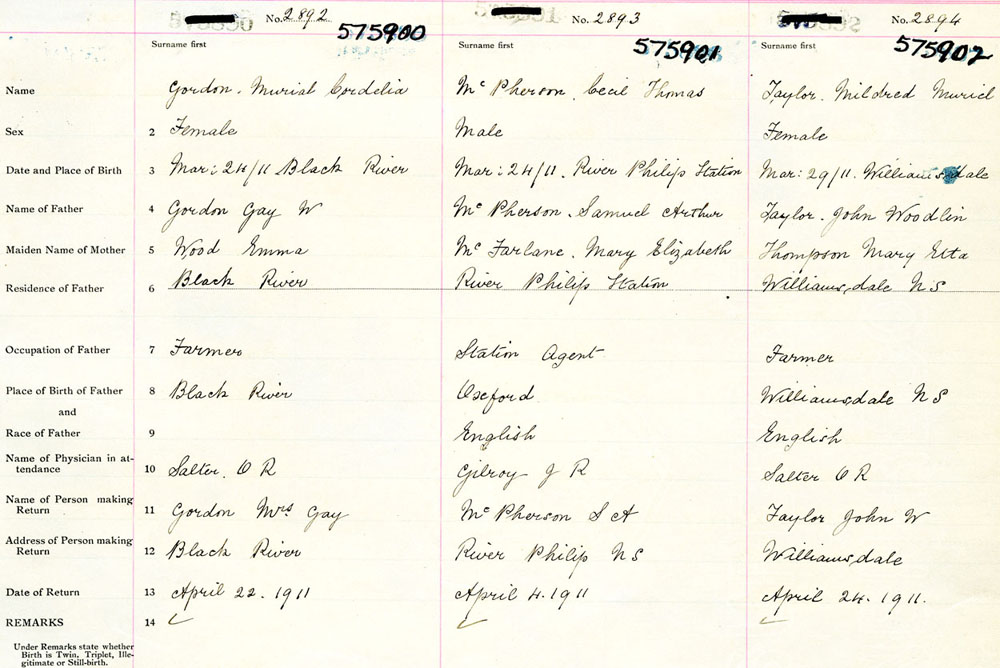 No. 2892 No. 2893 No. 2894
575900 575901 575902
Surname first Surname first Surname first
Name Gordon. Muriat Cordelia Mc Pherson. Cecil Thomas Taylor. Mildred Muriel
Sex 2 Female Male Female
Date and Place of Birth 3 Mar: 24/11 Black River Mar: 24/11. River Philip Station Mar: 29/11. Williamsdale
Name of Father 4 Gordon Gay W Mc Pherson. Samuel Arthur Taylor. John Woodlin
Maiden Name of Mother 5 Wood Emma Mc Farlane. Mary Elizabeth Thompson Mary Etta
Residence of Father 6 Black River River Philip Station Williamsdale N S
Occupation of Father 7 Farmer Station Agent Farmer
Place of Birth of Father 8 Black River Oxford Williamsdale N S
and
Race of Father 9 English English
Name of Physician in at-
tendance 10 Salter. O R Gilroy J R Salter O R
Name of Person making
Return 11 Gordon Mrs Gay Mc Pherson S A Taylor John W
Address of Person making
Return 12 Black River River Philip N S Williamsdale
Date of Return 13 April 22. 1911 April 4. 1911 April 24. 1911.
REMARKS 14
Under Remarks state whether
Birth is Twin, Triplet, Ille-
gitimate or Still-birth.